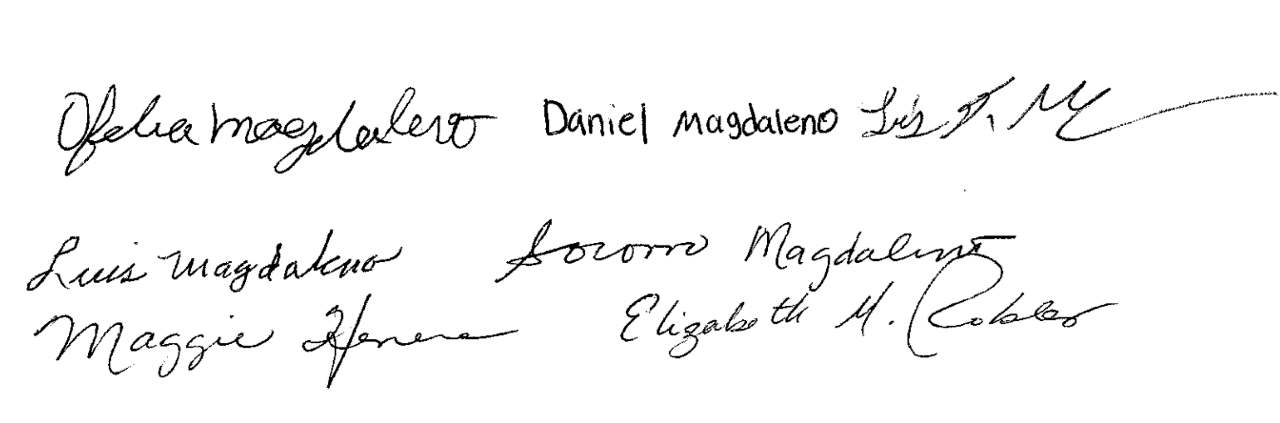 Ofelia Magdaleno Daniel Magdaleno Luis F. M
Luis Magdaleno Socorro Magdaleno
Maggie Herrera Elizabeth M. Robles